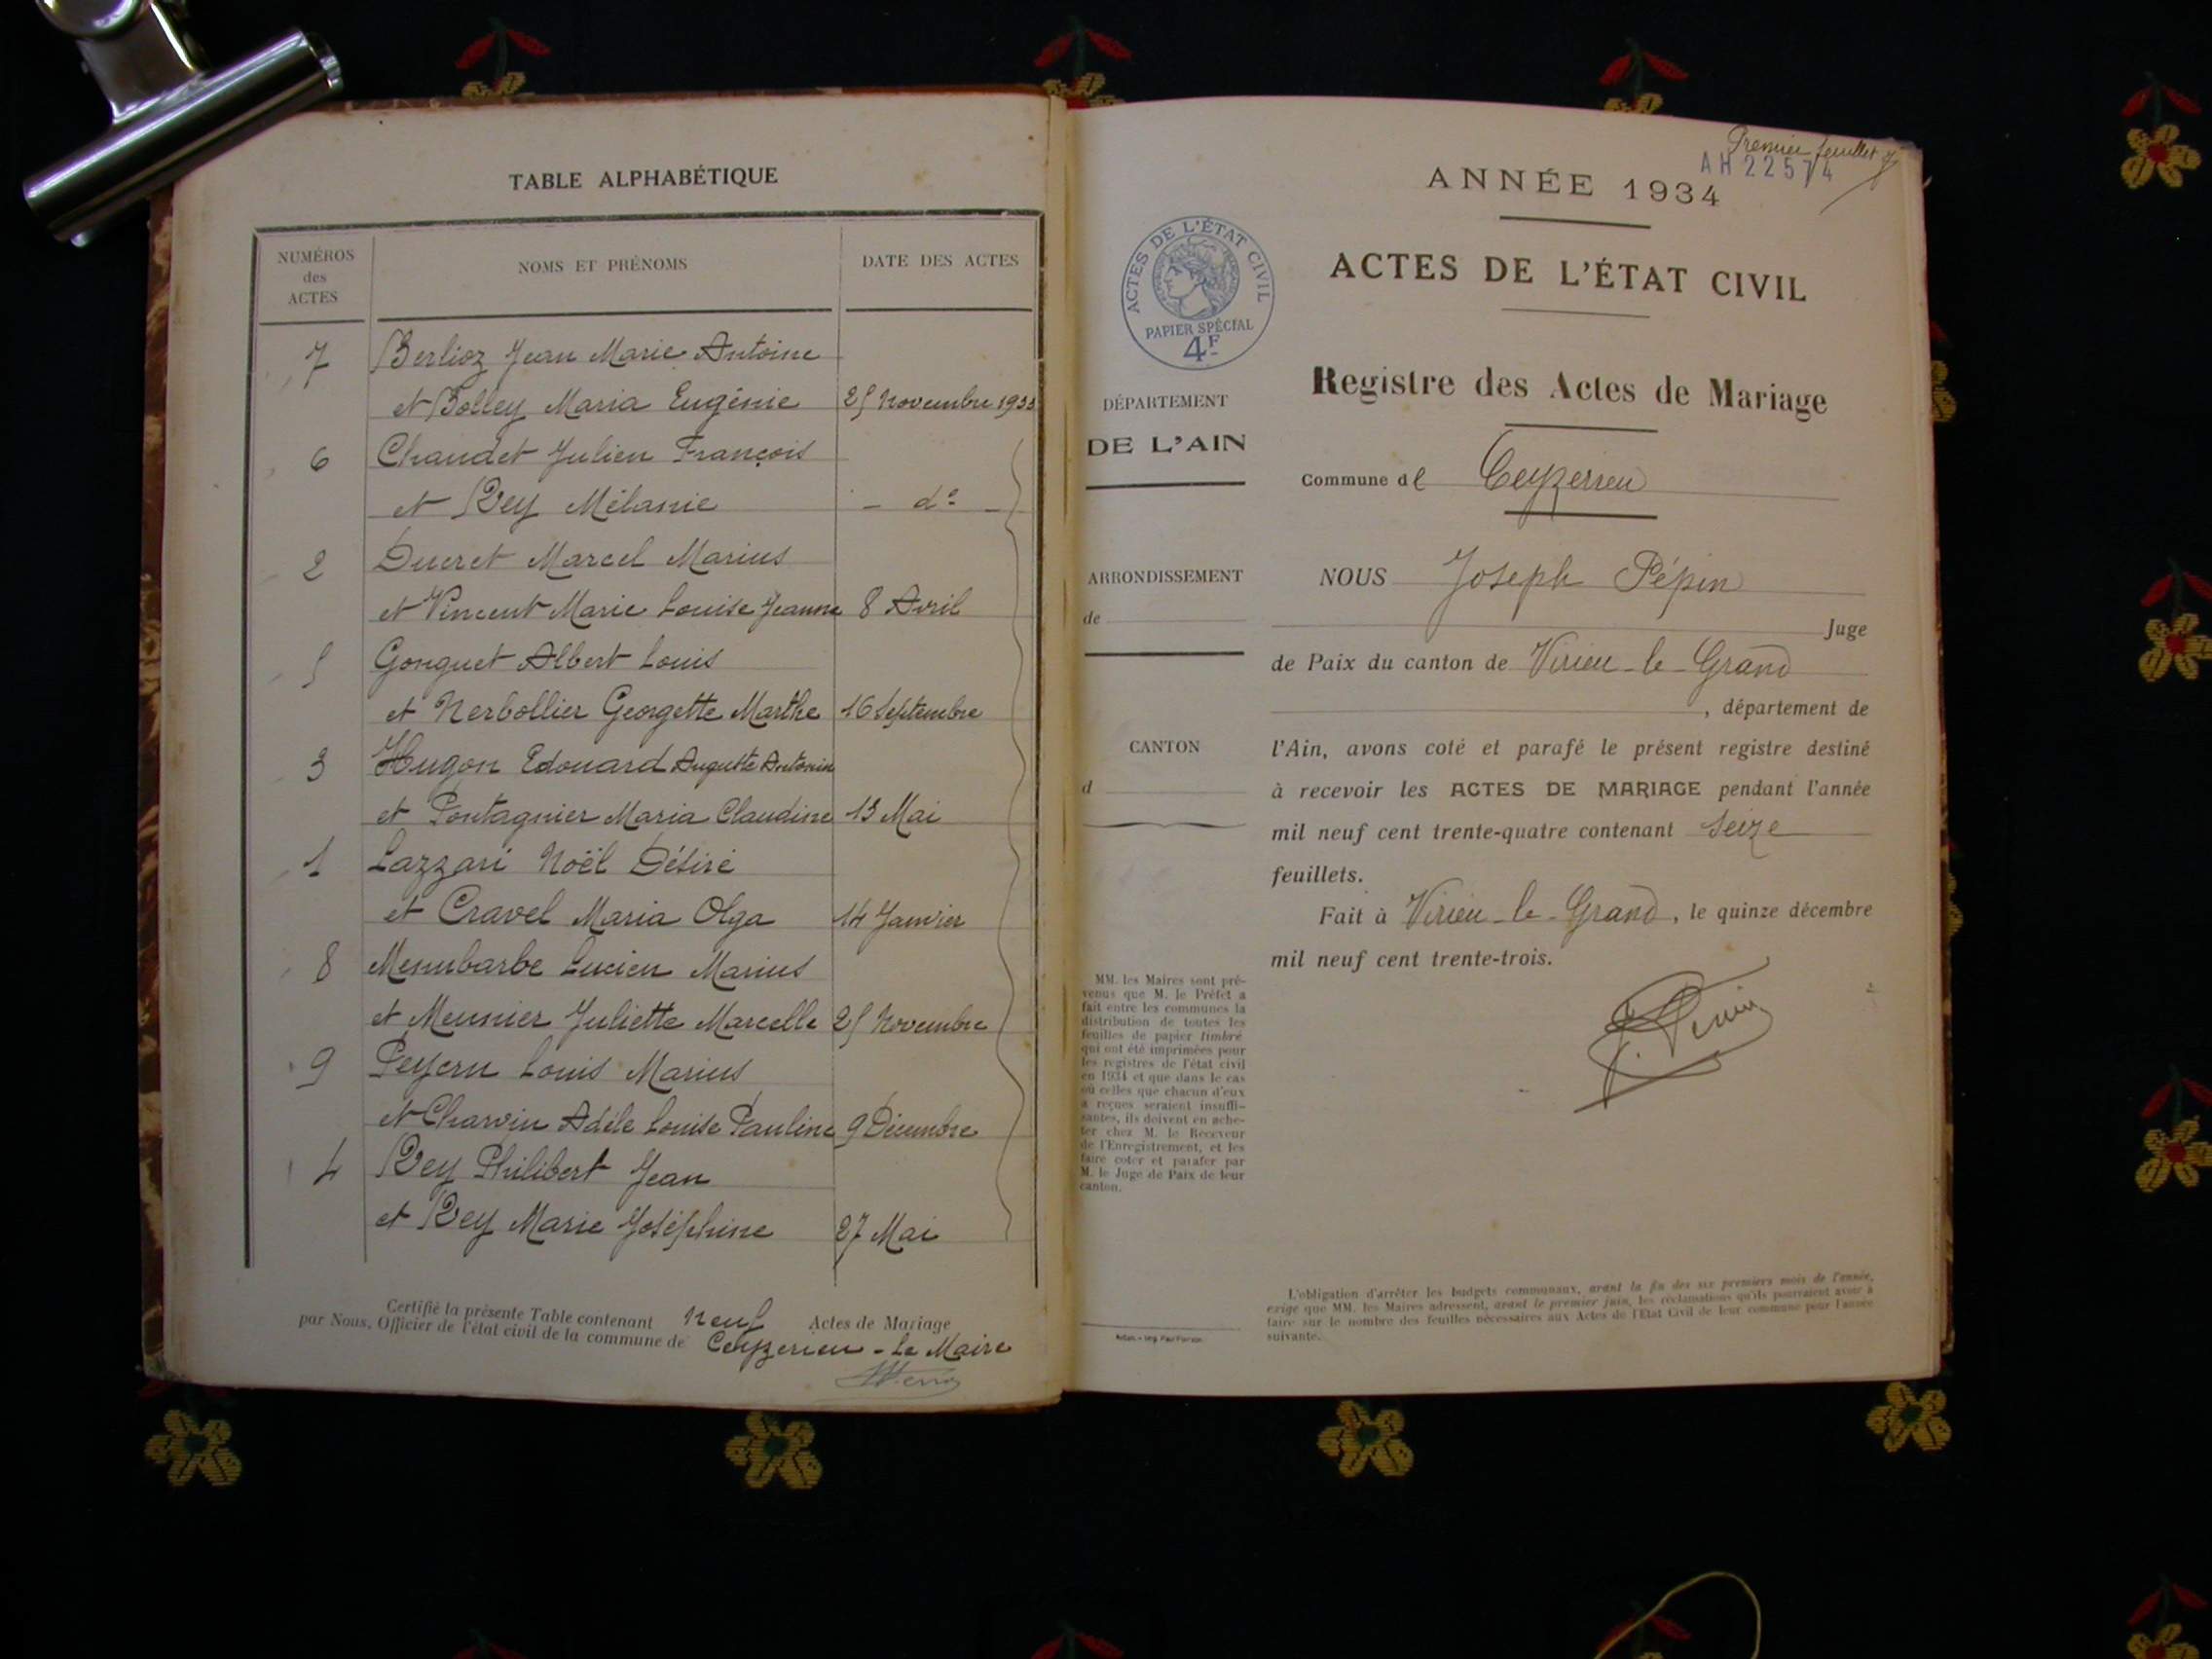 TABLE ALPHABÉTIQUE
NUMÉROS
des
ACTES
NOMS ET PRÉNOMS
DATE DES ACTES
7 Berlioz Jean Marie Antoine
et Bolley Maria Eugénie 25 Novembre 1933
6 Chaudet Julien François
et Rey Mélanie - do -
2 Ducret Marcel Marius
et Vincent Marie Louise Jeanne 8 Avril
5 Gonguet Albert Louis
et Nerbollier Georgette Marthe 16 Septembre
3 Hugon Edouard Auguste Antonin
et Pontagnier Maria Claudine 13 Mai
1 Lazzari Noël Désiré
et Cravel Maria Olga 14 Janvier
8 Menubarbe Lucien Marius
et Meunier Juliette Marcelle 25 Novembre
9 Peysru Louis Marius
et Charvin Adèle Louise Pauline 9 Décembre
4 Rey Philibert Jean
et Rey Marie Joséphine 27 Mai
Certifié la présente Table contenant Neuf Actes de Mariage
par Nous, Officier de l'état civil de la commune de Ceyzerieu - Le Maire
Premier feuillet
AH 22574
ANNÉE 1934
ACTES DE L'ÉTAT CIVIL
ACTES DE L'ÉTAT CIVIL
PAPIER SPÉCIAL
4F
Registre des Actes de Mariage
DÉPARTEMENT
DE L'AIN
Commune de Ceyzerieu
ARRONDISSEMENT
de
CANTON
d
NOUS Joseph Pépin
Juge
de Paix du canton de Virieu-le-Grand
, département de
l'Ain, avons coté et parafé le présent registre destiné
à recevoir les ACTES DE MARIAGE pendant l'année
mil neuf cent trente-quatre contenant seize
feuillets.
Fait à Virieu-le-Grand, le quinze décembre
mil neuf cent trente-trois.
MM. les Maires sont pré-
venus que M. le Préfet a
fait entre les communes la
distribution de toutes les
feuilles de papier timbré
qui ont été imprimées pour
les registres de l'état civil
en 1934 et que dans le cas
où celles que chacun d'eux
a reçues seraient insuffi-
santes, ils doivent en ache-
ter chez M. le Receveur
de l'Enregistrement, et les
faire coter et parafer par
M. le Juge de Paix de leur
canton.
L'obligation d'arrêter les budgets communaux, avant la fin des six premiers mois de l'année,
exige que MM. les Maires adressent, avant le premier juin, les réclamations qu'ils pourraient avoir à
faire sur le nombre des feuilles nécessaires aux Actes de l'Etat Civil de leur commune pour l'année
suivante.